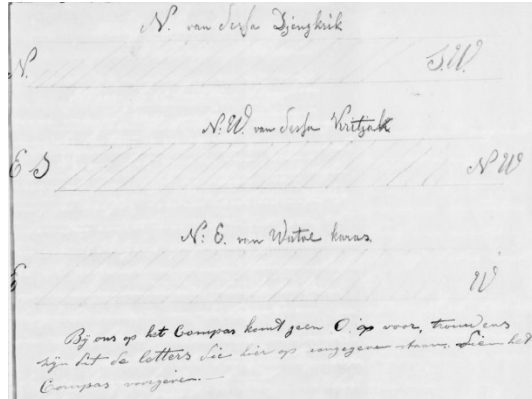 N. van dessa Djengkrik
N. S.W.
N: W. van dessa Kritjak
E S N W
N: E. van Watoe karas.
E W
Bij ons op het Compas komt geen O. op voor, trouwens
zijn dit de letters die hier op aangegeven staan, dien het
Compas voorgeven.